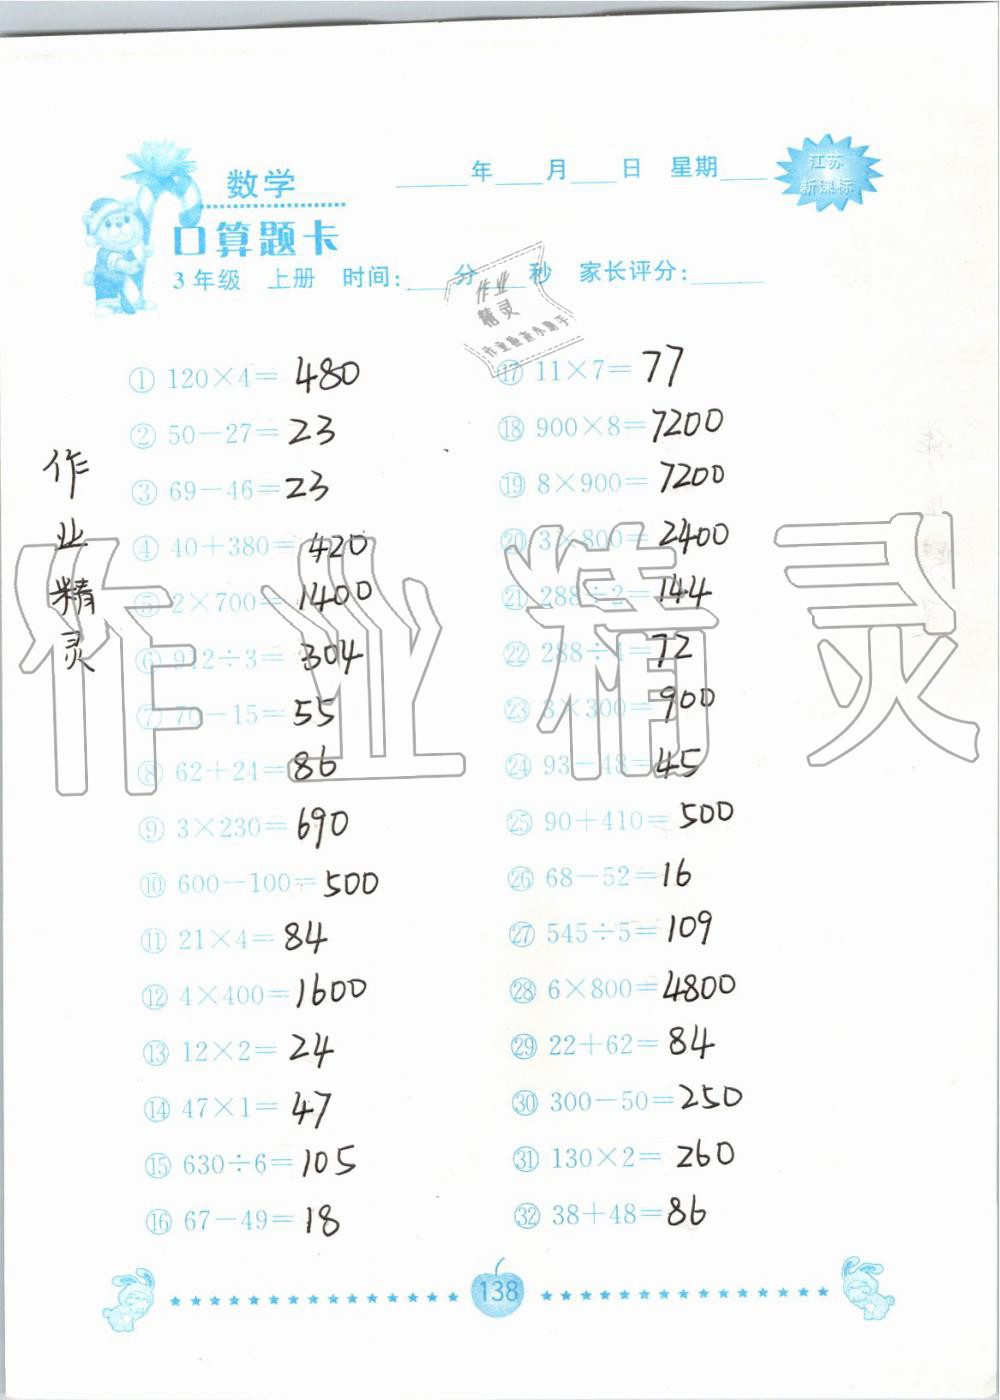 数学
口算题卡
____年____月____日 星期____
江苏
新课标
3年级 上册 时间:____分____秒 家长评分:____
作业
精灵
作业精灵
① 120×4= 480
② 50-27= 23
③ 69-46= 23
④ 40+380= 420
⑤ 2×700= 1400
⑥ 912÷3= 304
⑦ 70-15= 55
⑧ 62+24= 86
⑨ 3×230= 690
⑩ 600-100= 500
⑪ 21×4= 84
⑫ 4×400= 1600
⑬ 12×2= 24
⑭ 47×1= 47
⑮ 630÷6= 105
⑯ 67-49= 18
⑰ 11×7= 77
⑱ 900×8= 7200
⑲ 8×900= 7200
⑳ 3×800= 2400
㉑ 288÷2= 144
㉒ 288÷4= 72
㉓ 3×300= 900
㉔ 93-48= 45
㉕ 90+410= 500
㉖ 68-52= 16
㉗ 545÷5= 109
㉘ 6×800= 4800
㉙ 22+62= 84
㉚ 300-50= 250
㉛ 130×2= 260
㉜ 38+48= 86
作业精灵
138